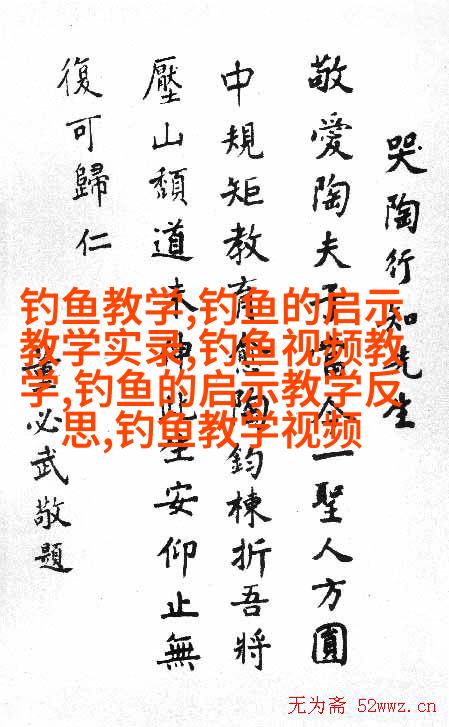 哭陶行知先生
敬愛陶夫子當今一聖人方圓
中規矩教育愈陶鈞棟折吾將
壓山頹道未申此生安仰止無
復可歸仁
董必武敬題
钓鱼教学,钓鱼的启示
教学实录,钓鱼视频教
学,钓鱼的启示教学反
思,钓鱼教学视频
无为斋 52wwz.cn